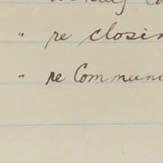 " re closin
" re Communi